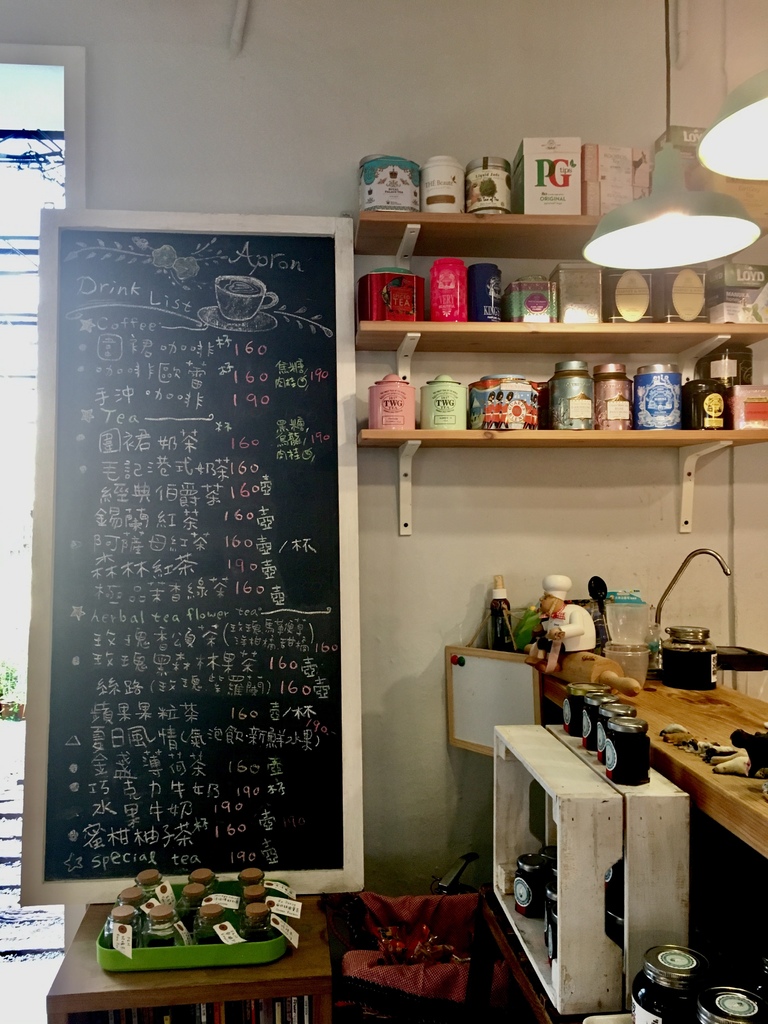 Apron
Drink List
Coffee
圍裙咖啡 杯 160
咖啡歐蕾 杯 160 焦糖 肉桂 190
手沖咖啡 190
Tea
圍裙奶茶 160 黑糖 烏龍 肉桂 190
毛記港式奶茶 160
經典伯爵茶 160 壺
錫蘭紅茶 160 壺
阿薩姆紅茶 160 壺/杯
森林紅茶 160 壺
極品茉香綠茶 160 壺
herbal tea flower tea
玫瑰香頌茶 (玫瑰 160
玫瑰黑森林果茶 160 壺
絲路(玫瑰紫羅蘭) 160 壺
蘋果果粒茶 160 壺/杯
夏日風情(氣泡飲·新鮮水果) 190
金盞薄荷茶 160 壺
巧克力牛奶 190 杯
水果牛奶 190
蜜柑柚子茶 杯 160 壺 190
special tea 190 壺
PG tips
ORIGINAL
LOYD
TEA
KING
TWG
TWG